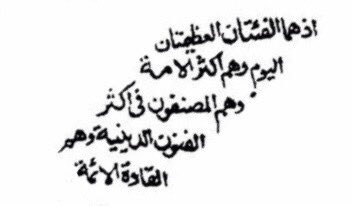 اذ هما الفئتان العظيمتان
اليوم وهم اكثر الامة
وهم المصنفون فى اكثر
الفنون الدينية وهم
القادة الائمة